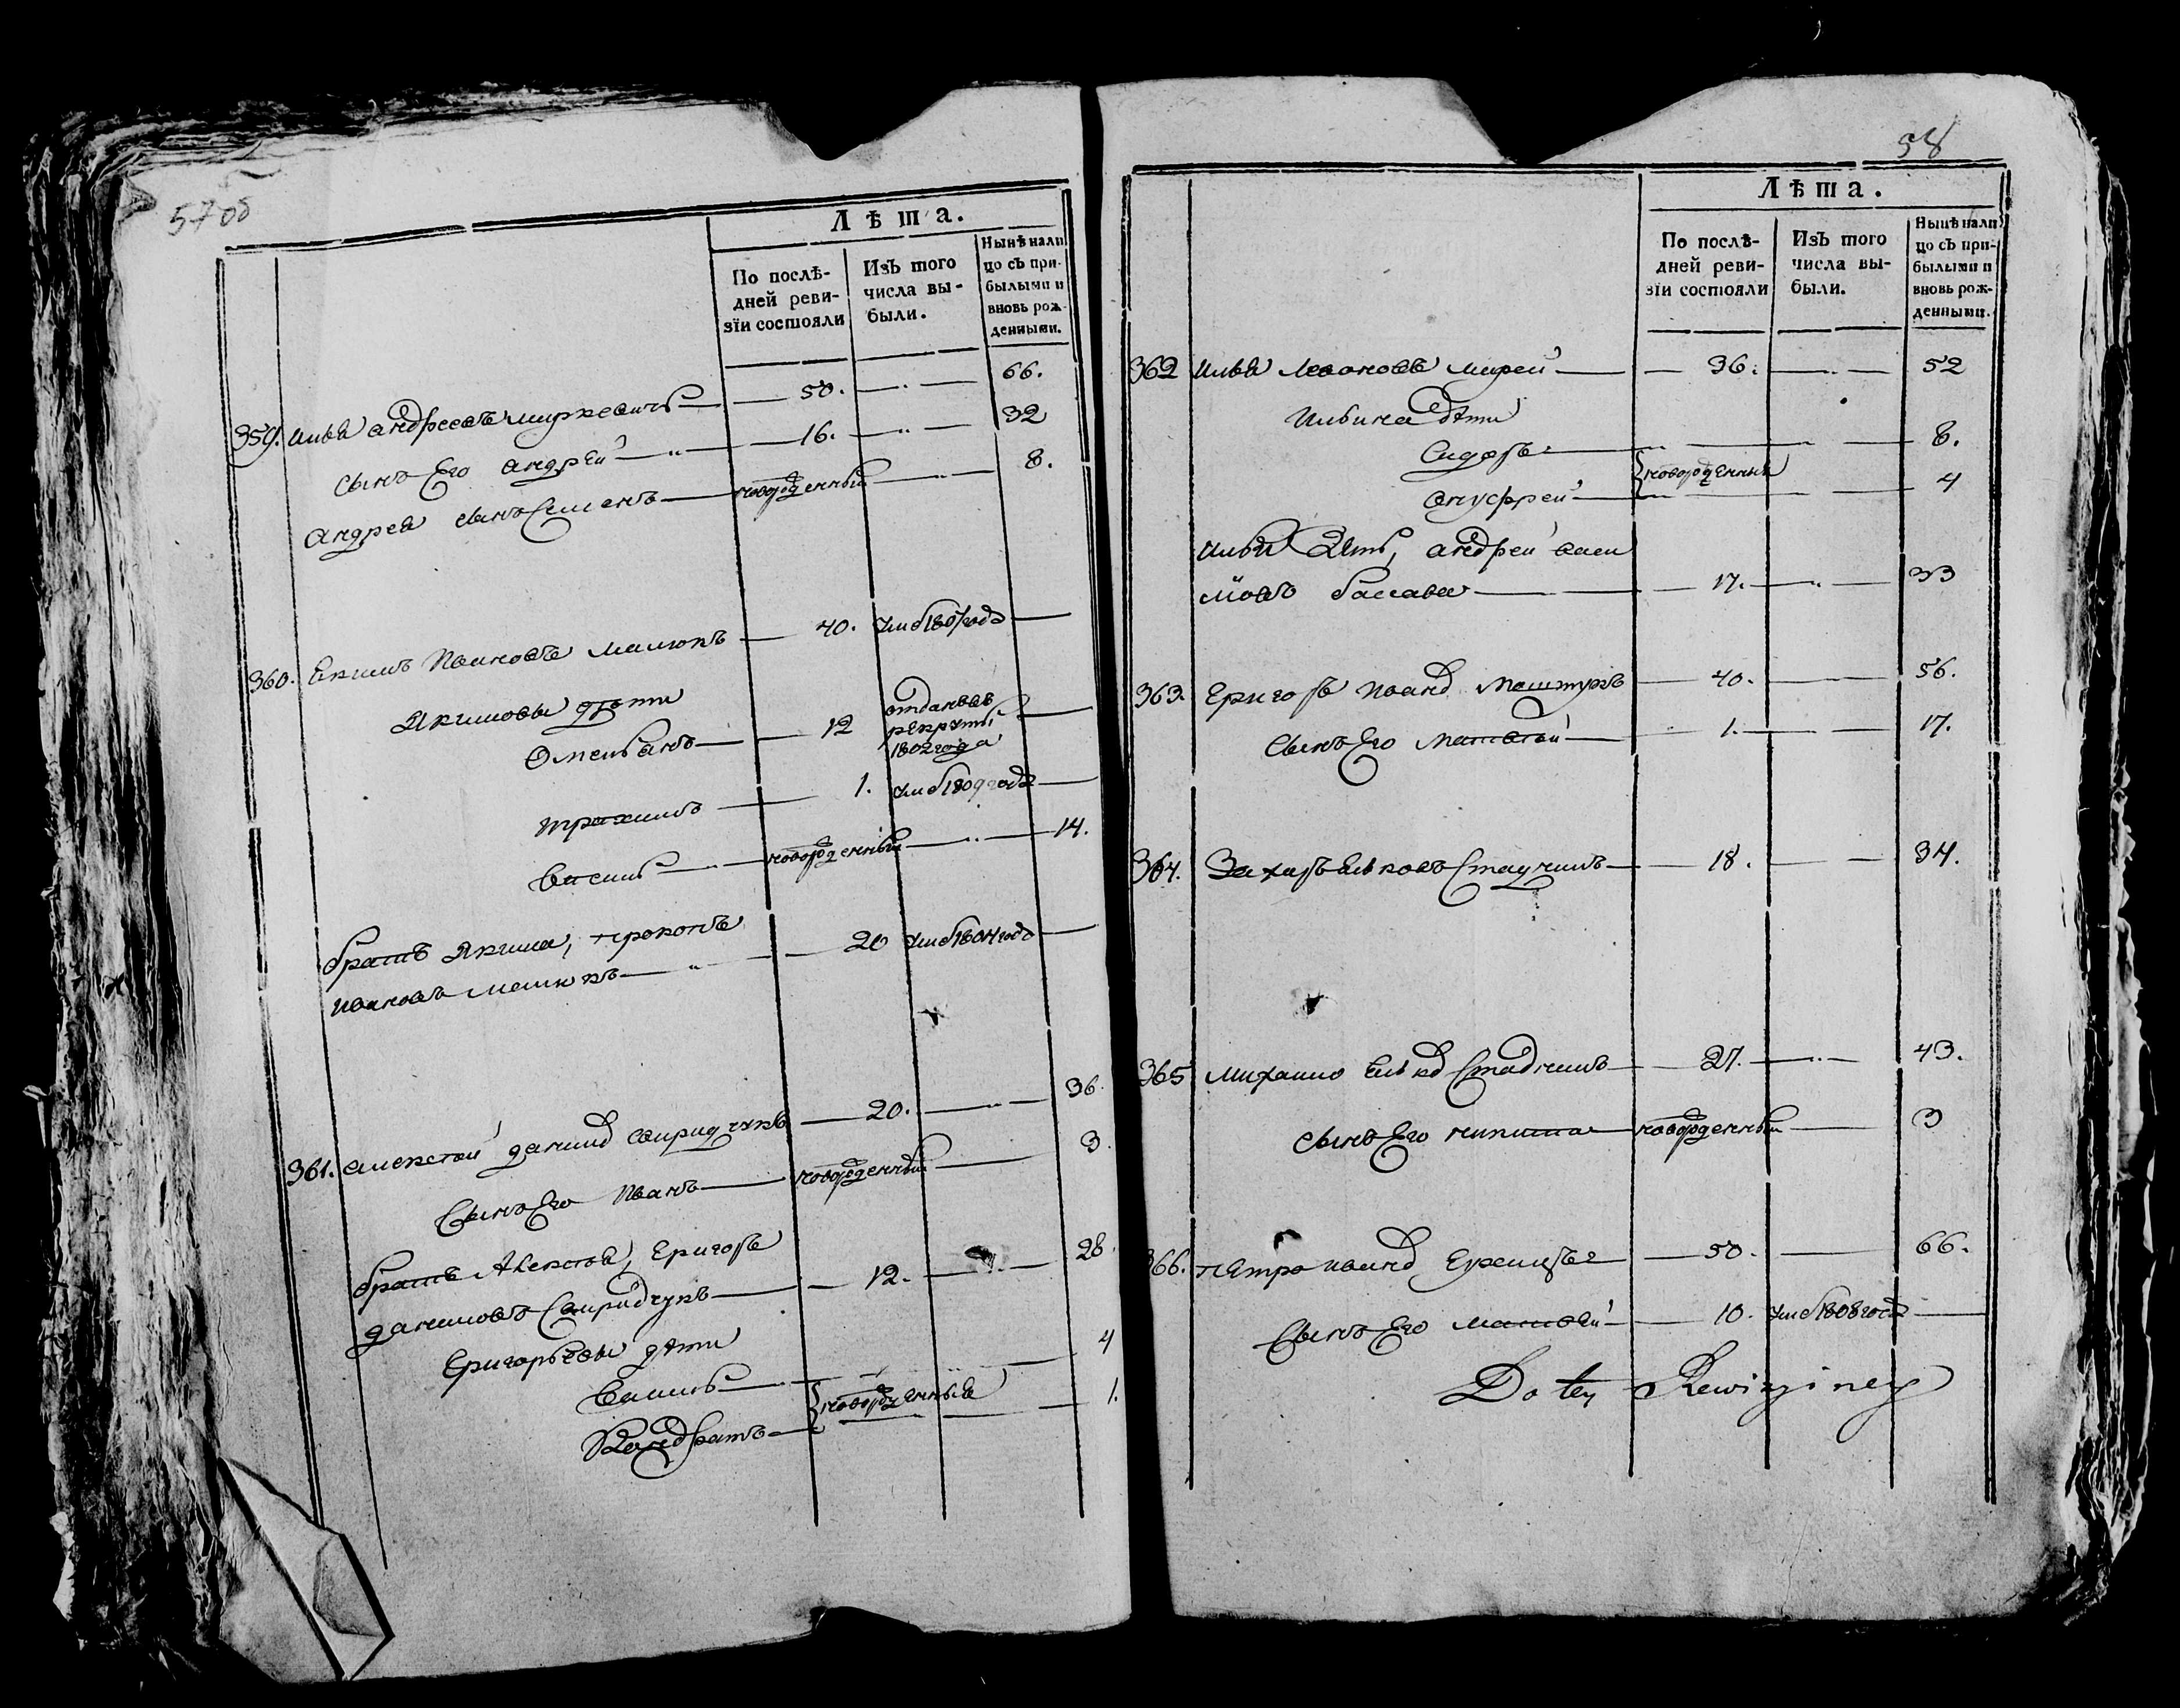 57 об
Лѣта.
По послѣ-
дней реви-
зїи состояли
Изъ того
числа вы-
были.
Нынѣ нали
цо съ при-
былыми и
вновь рож-
денными.
359. Илья Андреевъ — 50. — 66.
сынъ Его Андрей — 16. — 32
Андрея сынъ Семенъ — новорожденный — 8.
360. Екимъ Ивановъ Малюкъ — 40. умеръ 1807 года —
Якимовы дети
Омельянъ — 12 отданъ въ
рекруты
1802 года —
трахимъ — 1. умеръ 1809 года —
Василь — новорожденный — 14.
братъ Якима, прокопъ
Ивановъ Малюкъ — 20 умеръ 1804 года —
361. Алексѣй данил Свиридчукъ — 20. — 36.
Сынъ Его Иванъ — новорожденный — 3.
братъ Алексѣя, Григоръ
даниловъ Свиридчукъ — 12. — 28.
Григорьевы дѣти
Василь — 4
новорожденныя
Кандратъ — 1.
58
Лѣта.
По послѣ-
дней реви-
зїи состояли
Изъ того
числа вы-
были.
Нынѣ нали
цо съ при-
былыми и
вновь рож-
денными.
362 Илья Левоновъ — 36. — 52
Ильина дѣти
Сидоръ — 8.
новорожденныя
Онуфрей — 4
Ильи Зять, Андрей
— 17. — 33
363. Григоръ Иванов — 40. — 56.
Сынъ Его Матвѣй — 1. — 17.
364. Захаръ — 18. — 34.
365 Михайло — 27. — 43.
сынъ Его никита — новорожденный — 3
366. петро Иванов — 50. — 66.
Сынъ Его Матвѣй — 10. умеръ 1808 года —
Do tey Rewizyiney